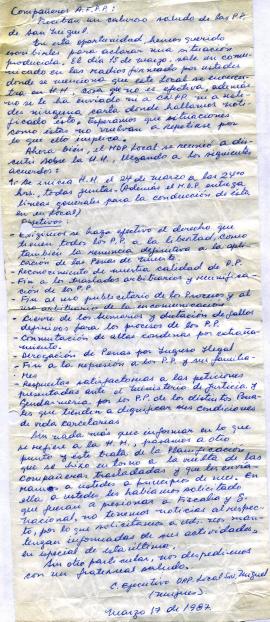 Compañeros A.F.P.P.:
Reciban un caluroso saludo de los P.P.
de San Miguel.
En esta oportunidad hemos querido
escribirles para aclarar una situación
producida. El día 15 de marzo, sale un comu-
nicado en las radios firmado por ustedes
donde se menciona que este local se encuentra
en H.H., cosa que no es efectiva, además
no se le ha enviado ni a CAPP ni a uste-
des ninguna carta donde hallamos noti-
ficado esto, esperamos que situaciones
como ésta no vuelvan a repetirse por
lo que ello implica.
Ahora bien, el MDP local se reunió a dis-
cutir sobre la H.H., llegando a los siguientes
acuerdos:
1o Se inicia H.H. el 24 de marzo a las 24:00
hrs. todos juntos. (Además el MDP entrega
líneas generales para la conducción de ésta
en su local)
Objetivos:
- Exigimos se haga efectivo el derecho que
tienen todos los P.P. a la libertad, como
también la renuncia definitiva a la apli-
cación de las Penas de Muerte.
- Reconocimiento de nuestra calidad de P.P.
- Fin a los traslados arbitrarios y reunifica-
ción de los P.P.
- Fin al uso publicitario de los Procesos y al
uso arbitrario de la incomunicación
- Cierre de los Sumarios y dictación de fallos
definitivos para los procesos de los P.P.
- Conmutación de altas condenas por extraña-
miento.
- Derogación de Penas por Ingreso Ilegal
- Fin a la represión a los P.P. y sus familia-
res
- Respuestas satisfactorias a las peticiones
presentadas ante el Ministerio de Justicia y
Gendarmería por los P.P. de los distintos Pena-
les que tienden a dignificar sus condiciones
de vida carcelarias.
Sin nada más que informar en lo que
se refiere a la H.H., pasamos a otro
punto y este trata de la Planificación
que se hizo en torno a la vuelta de las
compañeras trasladadas y que les envia-
mos a ustedes a principios de mes. En
ella a ustedes les habíamos solicitado
que fueran a presionar a Fiscalía y G.
Nacional, no tenemos noticias al respec-
to, por lo que solicitamos a uds. nos man-
tengan informados de sus actividades,
en especial de esta última.
Sin otro particular, nos despedimos
con un fraternal saludo.
C. Ejecutivo OPP Local San Miguel
(mujeres)
Marzo 17 de 1987.